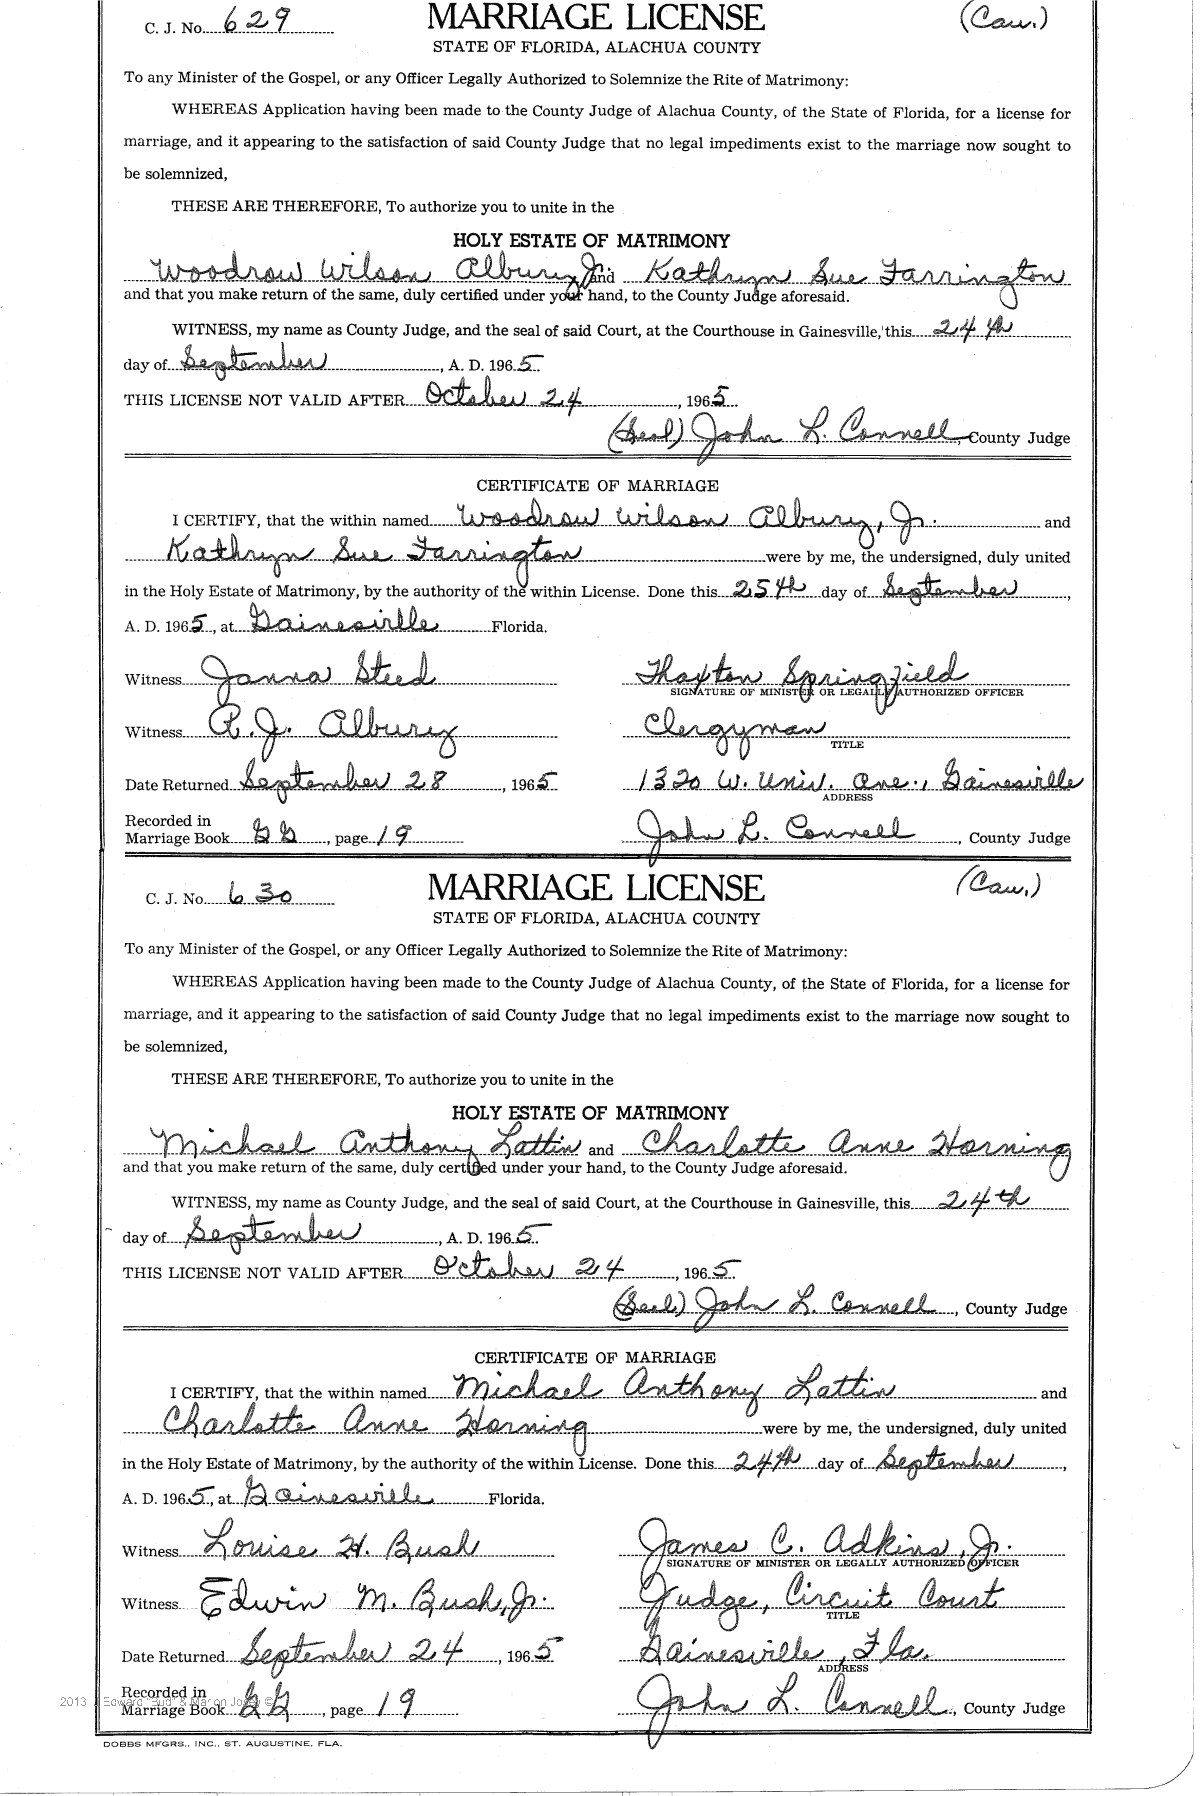 C. J. No. 629 MARRIAGE LICENSE (Cau.)
STATE OF FLORIDA, ALACHUA COUNTY
To any Minister of the Gospel, or any Officer Legally Authorized to Solemnize the Rite of Matrimony:
WHEREAS Application having been made to the County Judge of Alachua County, of the State of Florida, for a license for
marriage, and it appearing to the satisfaction of said County Judge that no legal impediments exist to the marriage now sought to
be solemnized,
THESE ARE THEREFORE, To authorize you to unite in the
HOLY ESTATE OF MATRIMONY
Woodrow Wilson Albury, Jr. and Kathryn Sue Farrington
and that you make return of the same, duly certified under your hand, to the County Judge aforesaid.
WITNESS, my name as County Judge, and the seal of said Court, at the Courthouse in Gainesville, this 24th
day of September, A. D. 1965.
THIS LICENSE NOT VALID AFTER October 24, 1965
(Seal) John L. Connell, County Judge
CERTIFICATE OF MARRIAGE
I CERTIFY, that the within named Woodrow Wilson Albury, Jr. and
Kathryn Sue Farrington were by me, the undersigned, duly united
in the Holy Estate of Matrimony, by the authority of the within License. Done this 25th day of September,
A. D. 1965, at Gainesville Florida.
Witness Janna Steed Thaxton Springfield
SIGNATURE OF MINISTER OR LEGALLY AUTHORIZED OFFICER
Witness R. J. Albury Clergyman
TITLE
Date Returned September 28, 1965 1320 W. Univ. Ave., Gainesville
ADDRESS
Recorded in
Marriage Book GG, page 19 John L. Connell, County Judge
C. J. No. 630 MARRIAGE LICENSE (Cau.)
STATE OF FLORIDA, ALACHUA COUNTY
To any Minister of the Gospel, or any Officer Legally Authorized to Solemnize the Rite of Matrimony:
WHEREAS Application having been made to the County Judge of Alachua County, of the State of Florida, for a license for
marriage, and it appearing to the satisfaction of said County Judge that no legal impediments exist to the marriage now sought to
be solemnized,
THESE ARE THEREFORE, To authorize you to unite in the
HOLY ESTATE OF MATRIMONY
Michael Anthony Lattin and Charlotte Anne Horning
and that you make return of the same, duly certified under your hand, to the County Judge aforesaid.
WITNESS, my name as County Judge, and the seal of said Court, at the Courthouse in Gainesville, this 24th
day of September, A. D. 1965.
THIS LICENSE NOT VALID AFTER October 24, 1965
(Seal) John L. Connell, County Judge
CERTIFICATE OF MARRIAGE
I CERTIFY, that the within named Michael Anthony Lattin and
Charlotte Anne Horning were by me, the undersigned, duly united
in the Holy Estate of Matrimony, by the authority of the within License. Done this 24th day of September,
A. D. 1965, at Gainesville Florida.
Witness Louise H. Bush James C. Adkins, Jr.
SIGNATURE OF MINISTER OR LEGALLY AUTHORIZED OFFICER
Witness Edwin M. Bush, Jr. Judge, Circuit Court
TITLE
Date Returned September 24, 1965 Gainesville, Fla.
ADDRESS
Recorded in
2013 Edward "Bud"
Marriage Book GG, page 19 John L. Connell, County Judge
DOBBS MFGRS., INC., ST. AUGUSTINE, FLA.